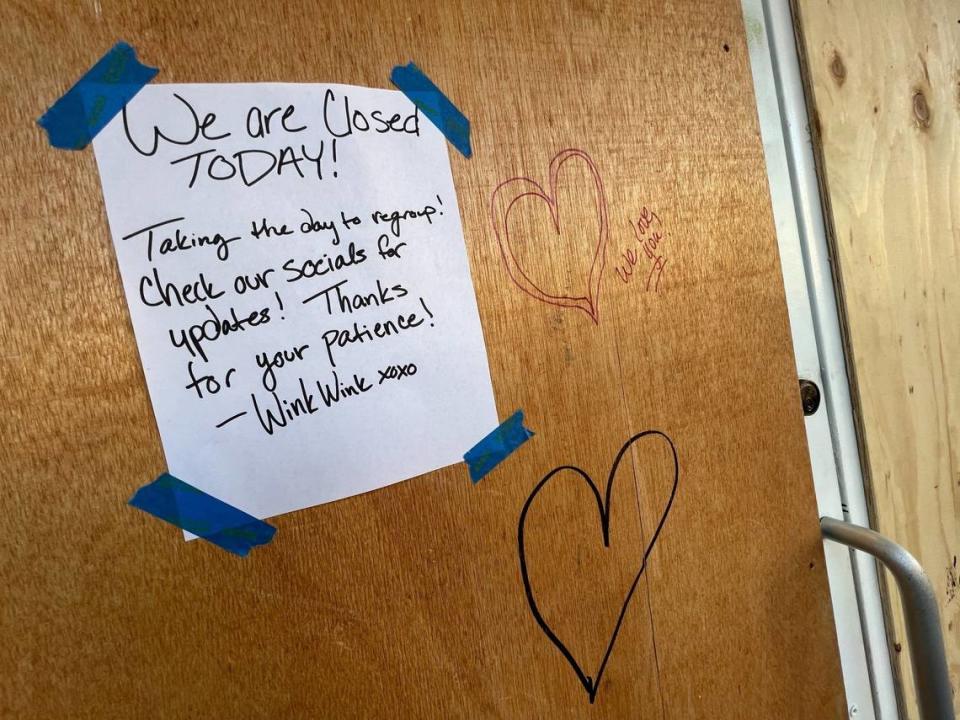 We are Closed
TODAY!
Taking the day to regroup!
Check our socials for
updates! Thanks
for your patience!
- Wink Wink xoxo
We love
you